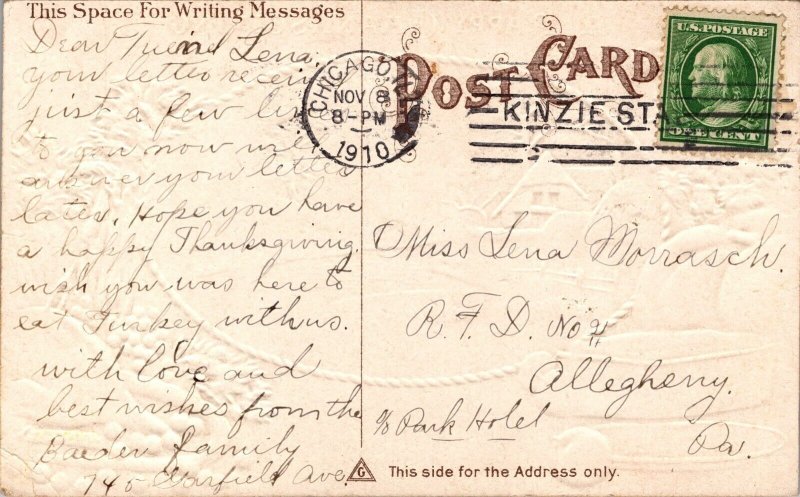 This Space For Writing Messages
Dear Friend Lena.
your letter receiv
just a few lin
to you now will
answer your letter
later. Hope you have
a happy Thanksgiving.
wish you was here to
eat Turkey with us.
with love and
best wishes from the
Baeder family
740 Garfield Ave.
POST CARD
CHICAGO, ILL
NOV 8
8-PM
1910
KINZIE STA
U.S. POSTAGE
ONE CENT
Miss Lena Morrasch.
R. F. D. No 4
Allegheny.
c/o Park Hotel
Pa.
G
This side for the Address only.